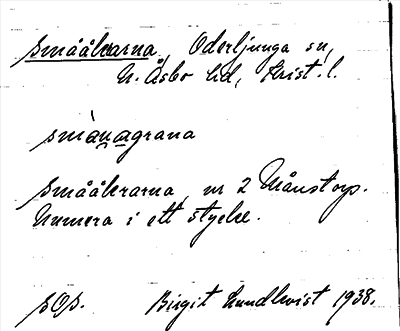 Smååkrarna, Oderljunga sn,
N. Åsbo hd, Krist. l.
smànagrana
Smååkrarna, nr 2 Månstorp.
Numera i ett stycke.
SOS. Birgit Lundkvist 1938.